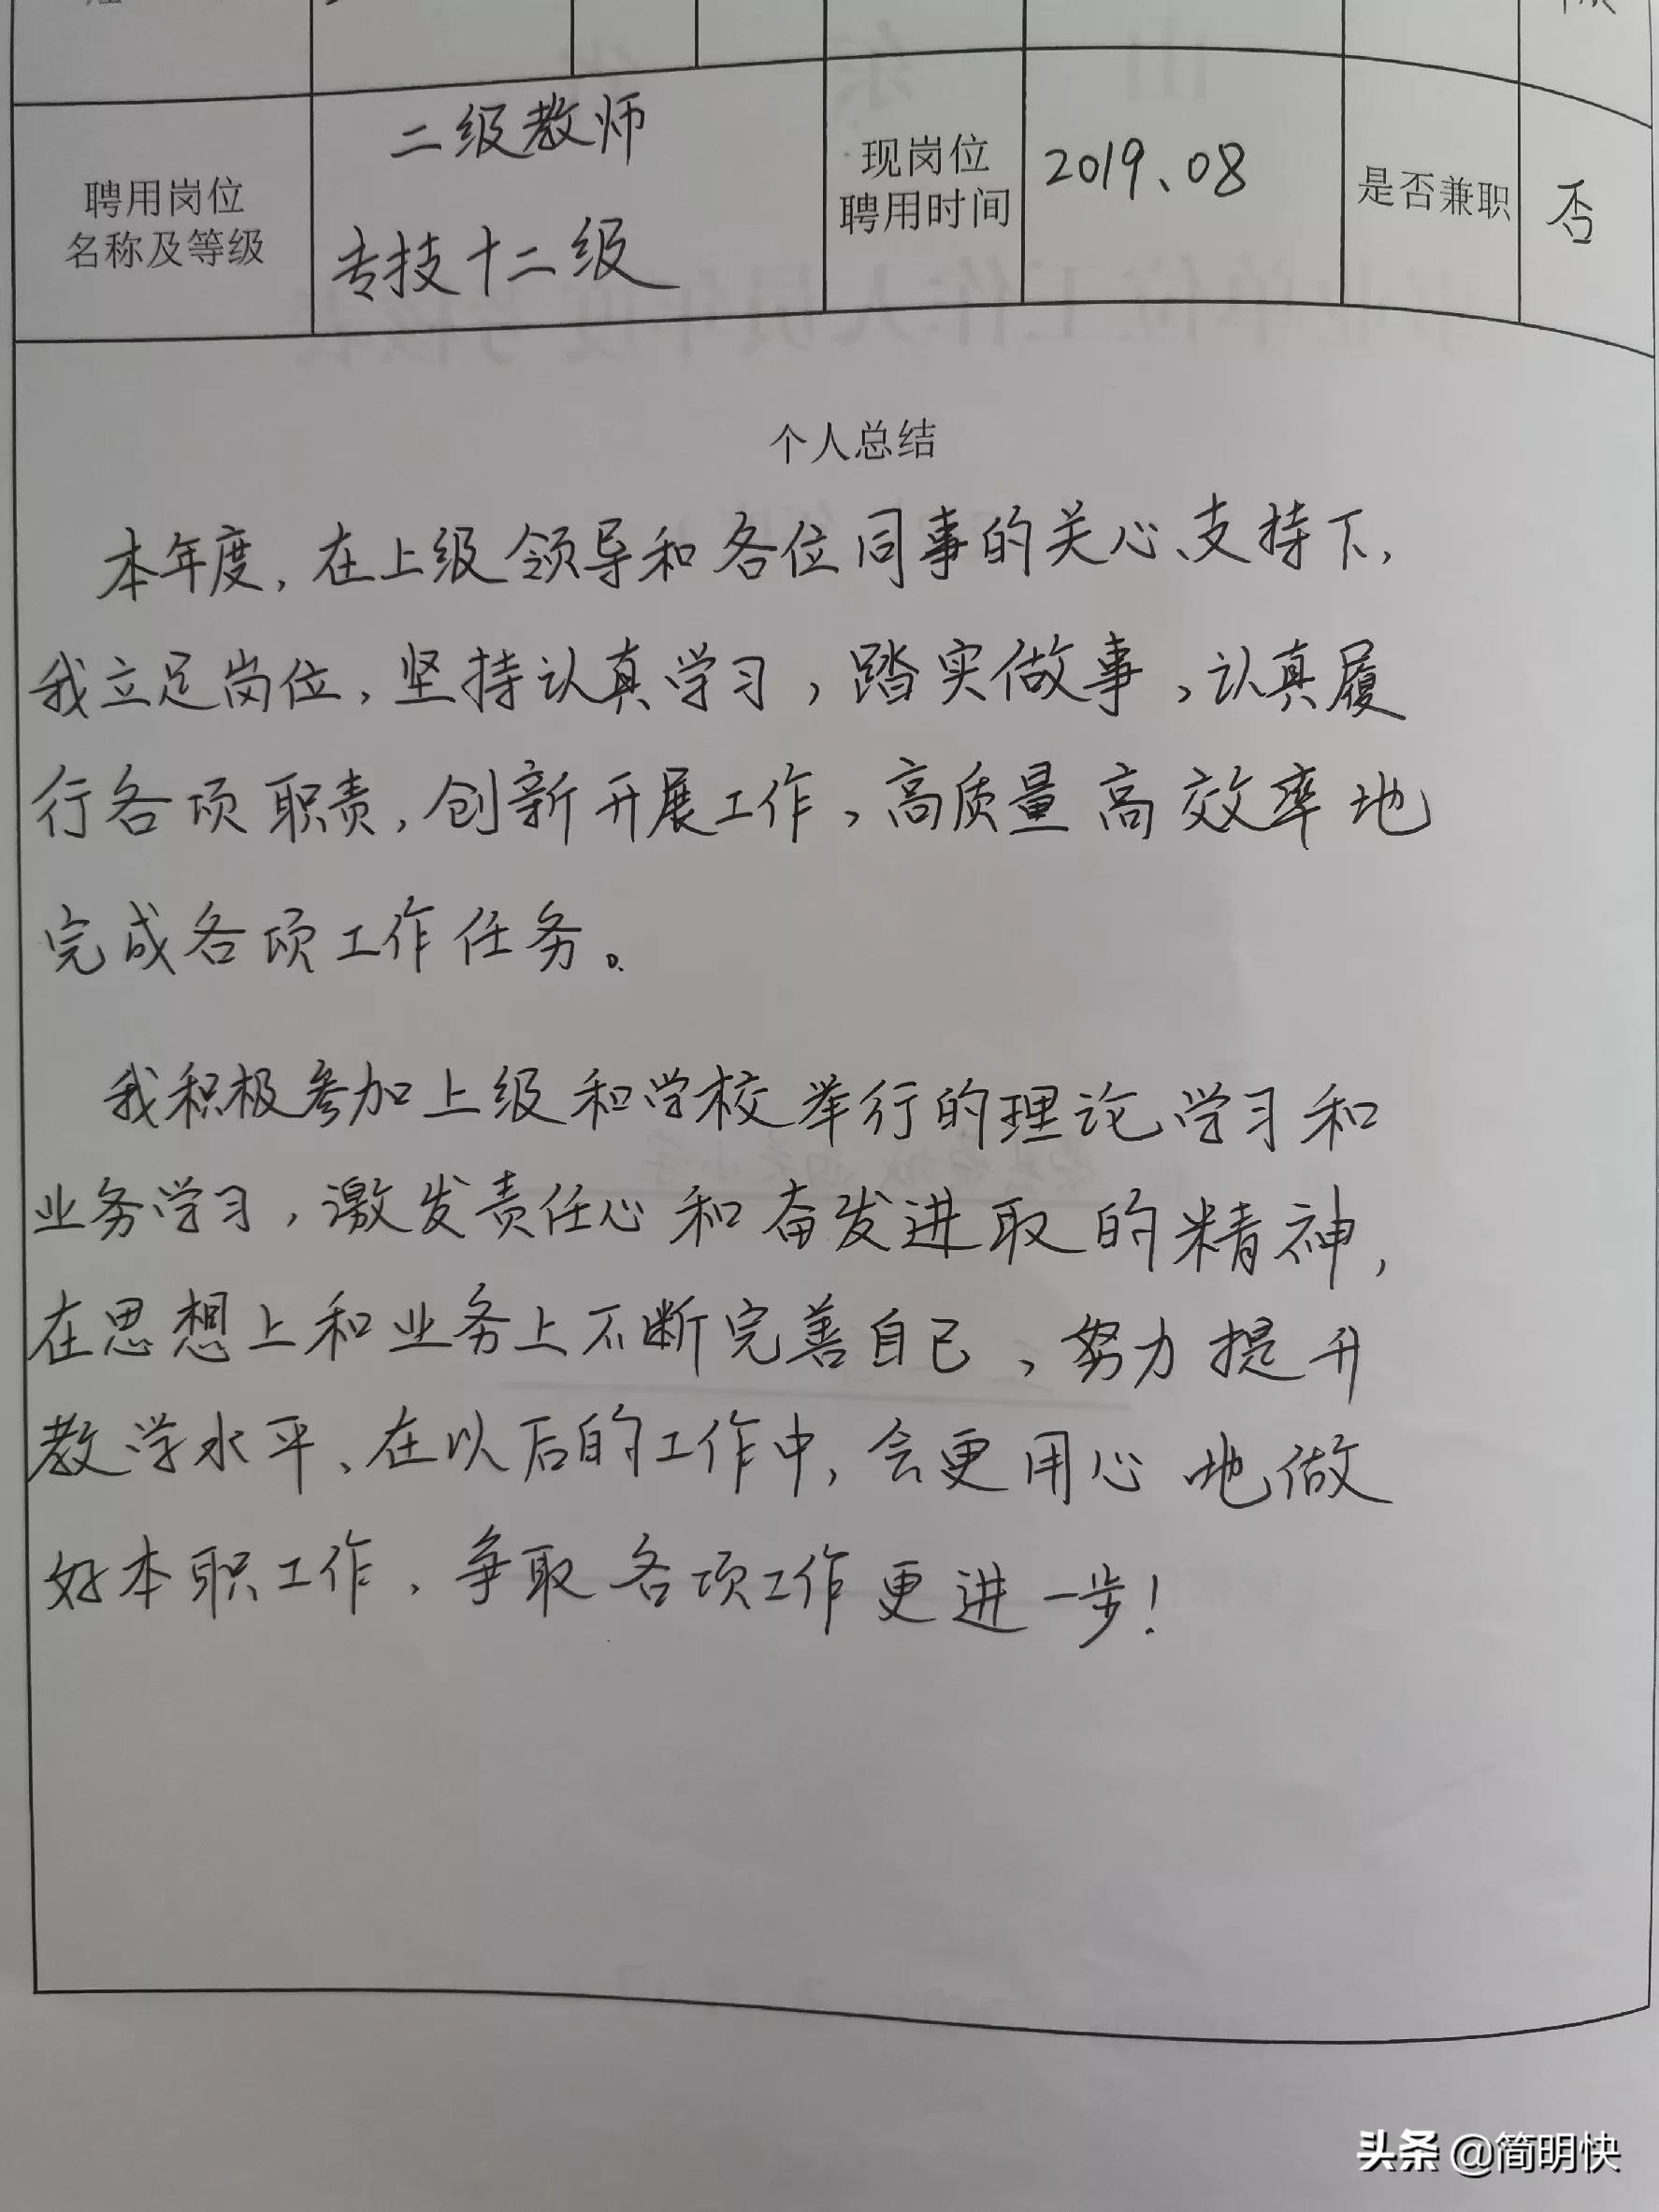 聘用岗位
名称及等级
二级教师
专技十二级
现岗位
聘用时间
2019、08
是否兼职
否
个人总结
本年度,在上级领导和各位同事的关心、支持下,
我立足岗位,坚持认真学习,踏实做事,认真履
行各项职责,创新开展工作,高质量高效率地
完成各项工作任务。
我积极参加上级和学校举行的理论学习和
业务学习,激发责任心和奋发进取的精神,
在思想上和业务上不断完善自己,努力提升
教学水平、在以后的工作中,会更用心地做
好本职工作,争取各项工作更进一步!
头条 @简明快